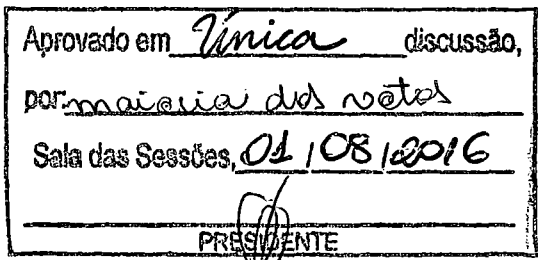 Aprovado em Única discussão,
por maioria dos votos
Sala das Sessões, 01/08/2016
PRESIDENTE